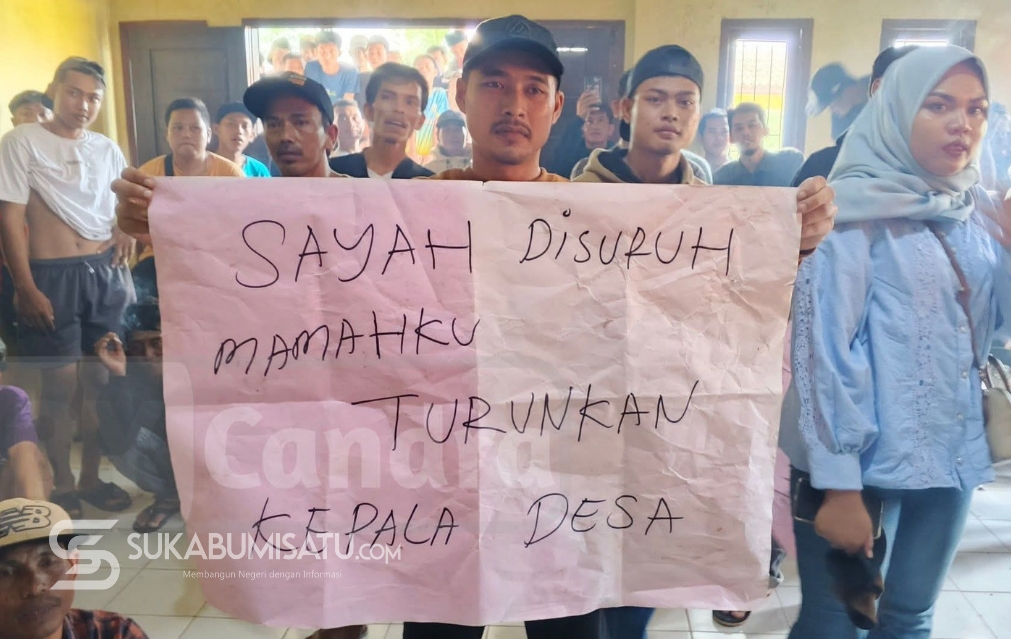 SAYAH DISURUH
MAMAHKU
TURUNKAN
KEPALA DESA
Candra
SUKABUMISATU.COM
Membangun Negeri dengan Informasi